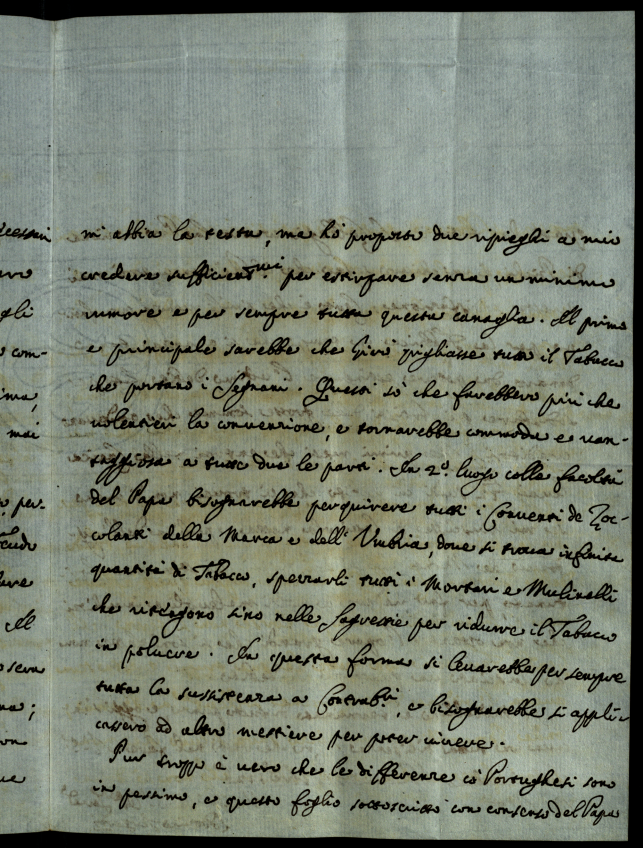 mi abbia la testa, ma hò proposto due ripieghi a mio
credere sufficientmi. per estirpare senza un minimo
rumore e per sempre tutta questa canaglia. Il primo
e principale sarebbe che Girò pigliasse tutto il Tabacco
che portano i Legnani. Questi sò che farebbero più che
volentieri la convenzione, e tornarebbe commoda e van-
taggiosa a tutte due le parti. In 2º. luogo colle facoltà
del Papa bisognarebbe perquirere tutti i Conventi de Zoc-
colanti della Marca e dell'Umbria, dove si trova infinita
quantità di Tabacco, spezzarli tutti i Mortari e Mulinelli
che ritengono sino nelle Sagrestie per ridurre il Tabacco
in polvere. In questa forma si levarebbe per sempre
tutta la sussistenza a Contrab.i, e bisognarebbe si appli-
cassero ad altro mestiere per poter vivere.
Pur troppo è vero che le differenze cò Portughesi sono
in pessimo, e questo foglio sottoscritto con consenso del Papa
gli
com-
ima,
mai
per-
Il